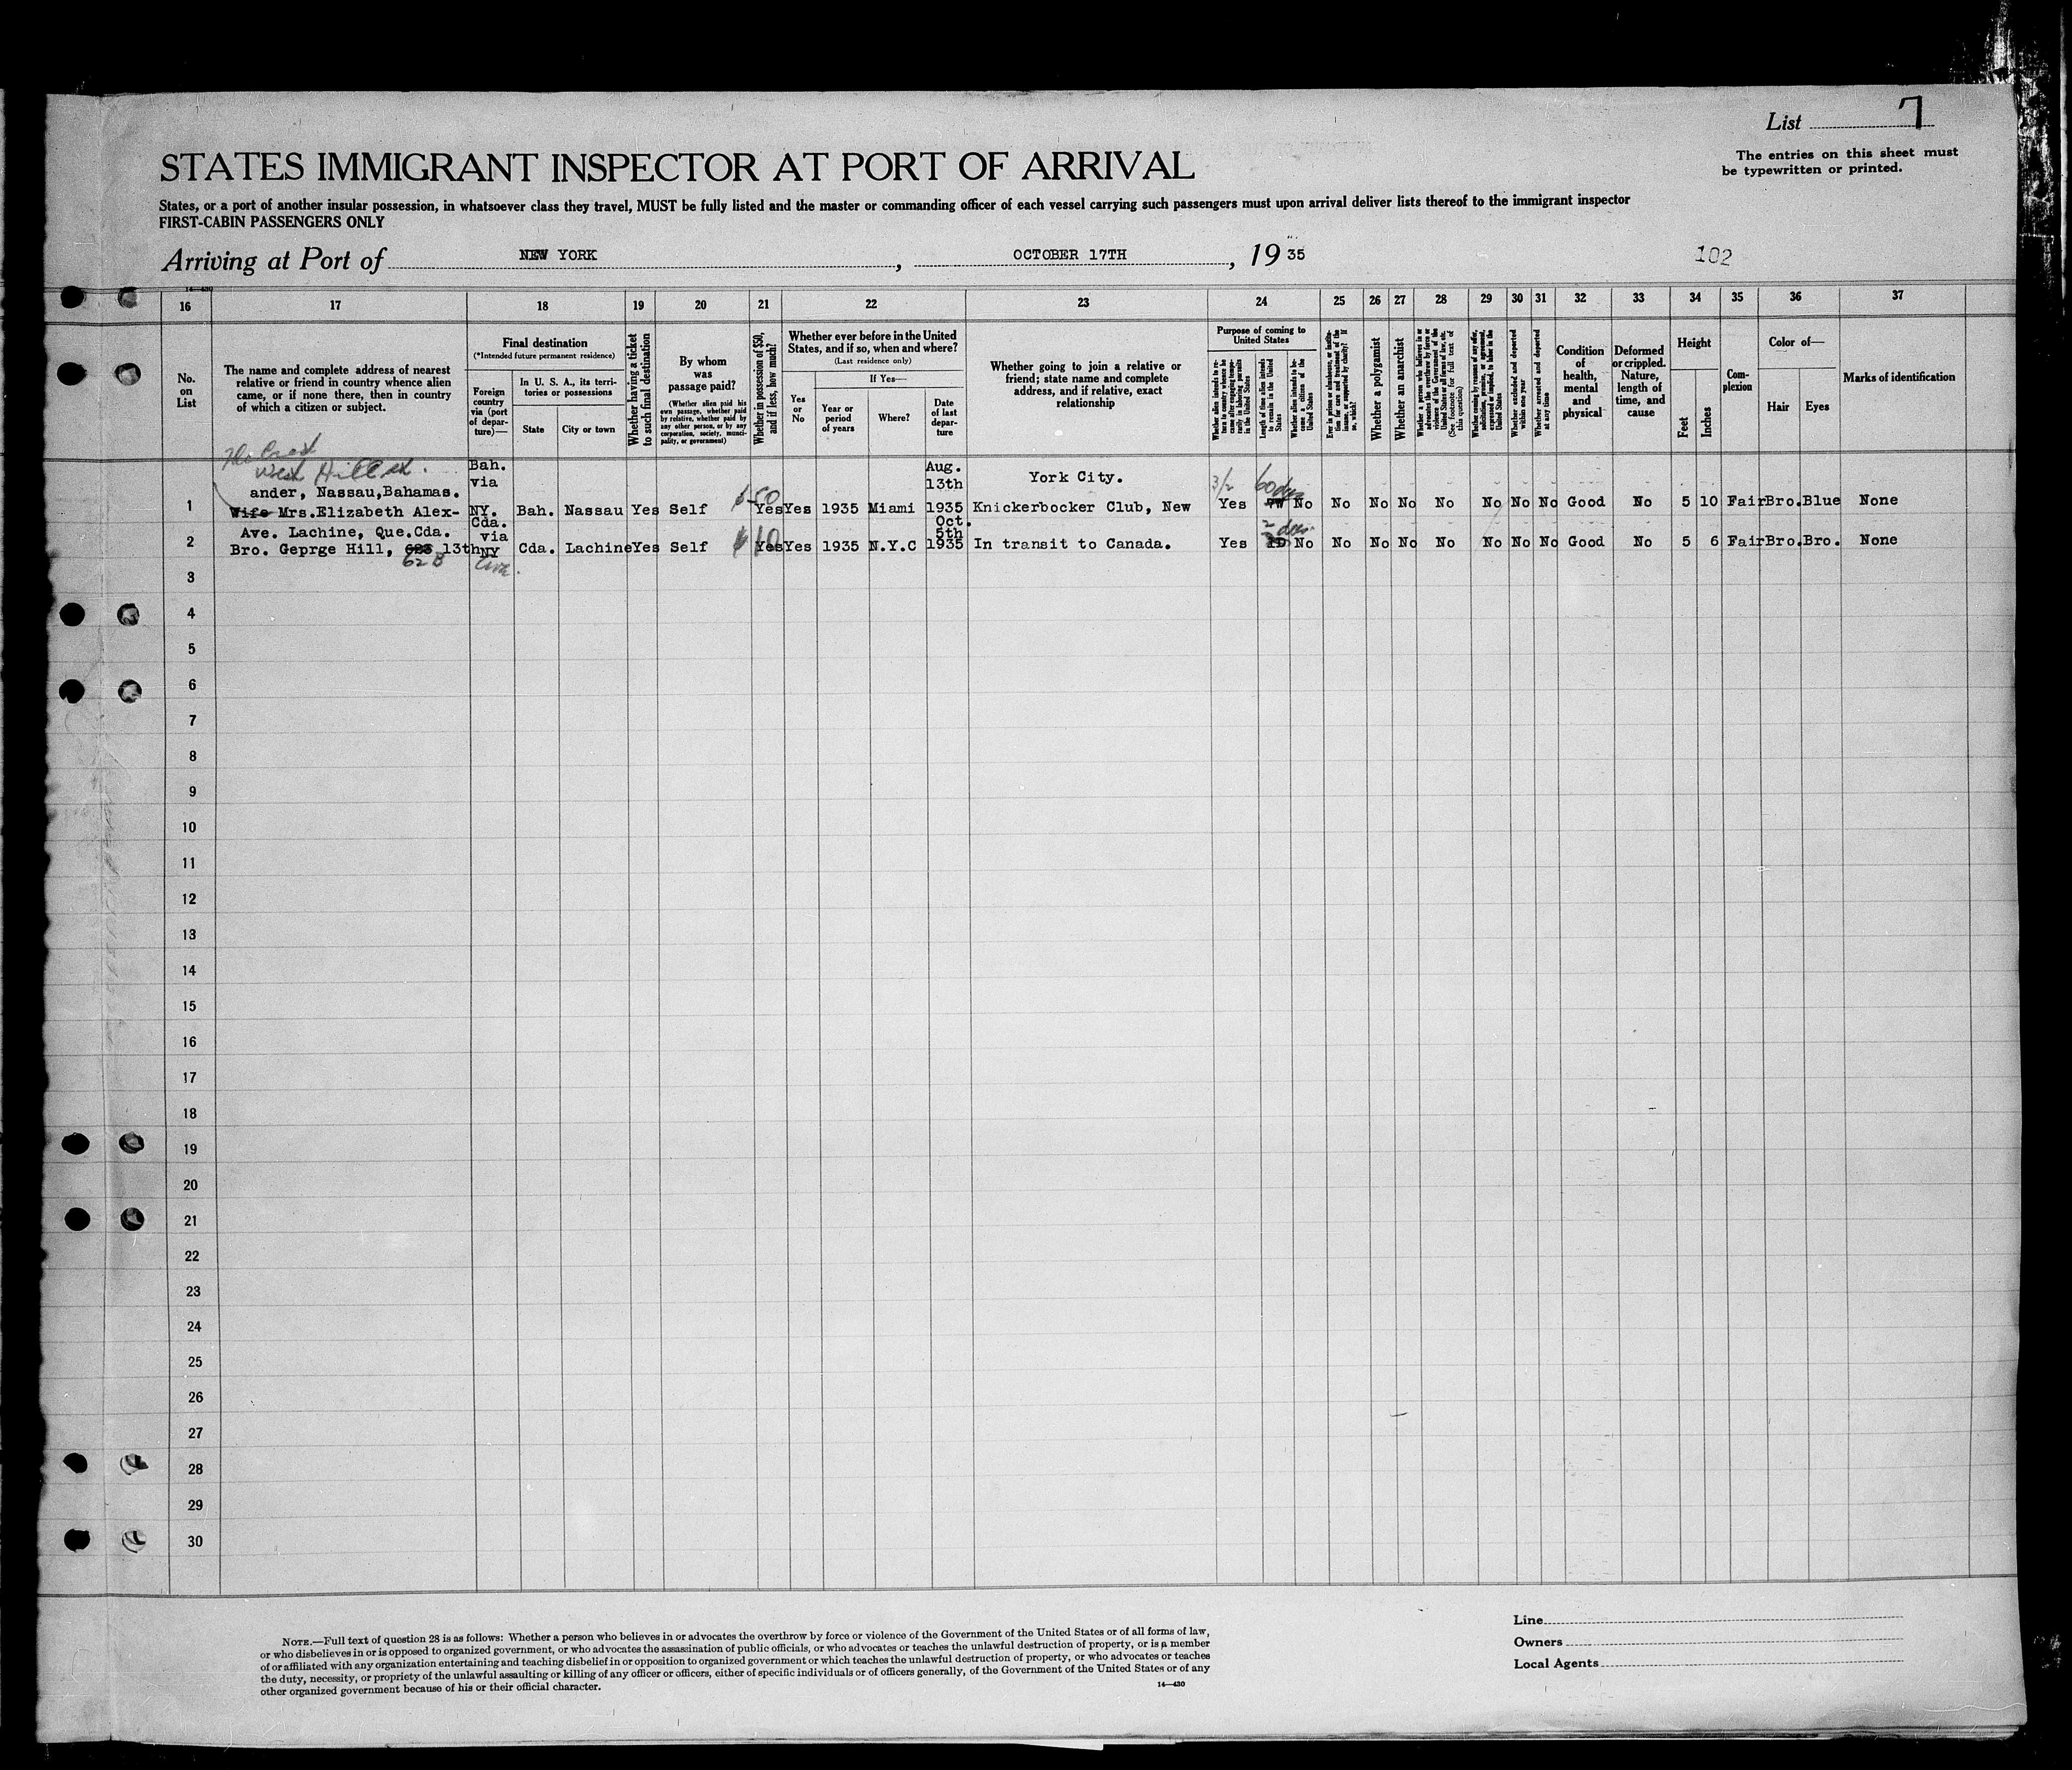 List 7
The entries on this sheet must
be typewritten or printed.
STATES IMMIGRANT INSPECTOR AT PORT OF ARRIVAL
States, or a port of another insular possession, in whatsoever class they travel, MUST be fully listed and the master or commanding officer of each vessel carrying such passengers must upon arrival deliver lists thereof to the immigrant inspector
FIRST-CABIN PASSENGERS ONLY
Arriving at Port of NEW YORK, OCTOBER 17TH, 1935
102
14-430
16 17 18 19 20 21 22 23 24 25 26 27 28 29 30 31 32 33 34 35 36 37
No.
on
List
The name and complete address of nearest
relative or friend in country whence alien
came, or if none there, then in country
of which a citizen or subject.
Final destination
(*Intended future permanent residence)
Foreign
country
via (port
of depar-
ture)—
In U. S. A., its terri-
tories or possessions
State
City or town
Whether having a ticket
to such final destination
By whom
was
passage paid?
(Whether alien paid his
own passage, whether paid
by relative, whether paid by
any other person, or by any
corporation, society, munici-
pality, or government)
Whether in possession of $50,
and if less, how much?
Whether ever before in the United
States, and if so, when and where?
(Last residence only)
Yes
or
No
If Yes—
Year or
period
of years
Where?
Date
of last
depar-
ture
Whether going to join a relative or
friend; state name and complete
address, and if relative, exact
relationship
Purpose of coming to
United States
Whether alien intends to re-
turn to country whence he
came after engaging tempo-
rarily in laboring pursuits
in the United States
Length of time alien intends
to remain in the United
States
Whether alien intends to be-
come a citizen of the
United States
Ever in prison or almshouse, or institu-
tion for care and treatment of the
insane, or supported by charity? If
so, which?
Whether a polygamist
Whether an anarchist
Whether a person who believes in or
advocates the overthrow by force or
violence of the Government of the
United States or all forms of law, etc.
(See footnote for full text of
this question)
Whether coming by reason of any offer,
solicitation, promise, or agreement,
expressed or implied, to labor in the
United States
Whether excluded and deported
within one year
Whether arrested and deported
at any time
Condition
of
health,
mental
and
physical
Deformed
or crippled.
Nature,
length of
time, and
cause
Height
Feet
Inches
Com-
plexion
Color of—
Hair
Eyes
Marks of identification
West Hill st.
Bah.
via
Aug.
13th
ander, Nassau,Bahamas. York City. 3/2 60 dys
1 Wife Mrs.Elizabeth Alex- NY. Bah. Nassau Yes Self $50 Yes Yes 1935 Miami 1935 Knickerbocker Club, New Yes No No No No No No No No Good No 5 10 Fair Bro. Blue None
Ave. Lachine, Que.Cda. Cda. via Oct. 5th 2 dys
2 Bro. Geprge Hill, 628 13th NY Cda. Lachine Yes Self $10 Yes Yes 1935 N.Y.C 1935 In transit to Canada. Yes No No No No No No No No Good No 5 6 Fair Bro. Bro. None
3
4
5
6
7
8
9
10
11
12
13
14
15
16
17
18
19
20
21
22
23
24
25
26
27
28
29
30
NOTE.—Full text of question 28 is as follows: Whether a person who believes in or advocates the overthrow by force or violence of the Government of the United States or of all forms of law,
or who disbelieves in or is opposed to organized government, or who advocates the assassination of public officials, or who advocates or teaches the unlawful destruction of property, or is a member
of or affiliated with any organization entertaining and teaching disbelief in or opposition to organized government or which teaches the unlawful destruction of property, or who advocates or teaches
the duty, necessity, or propriety of the unlawful assaulting or killing of any officer or officers, either of specific individuals or of officers generally, of the Government of the United States or of any
other organized government because of his or their official character.
14—430
Line
Owners
Local Agents